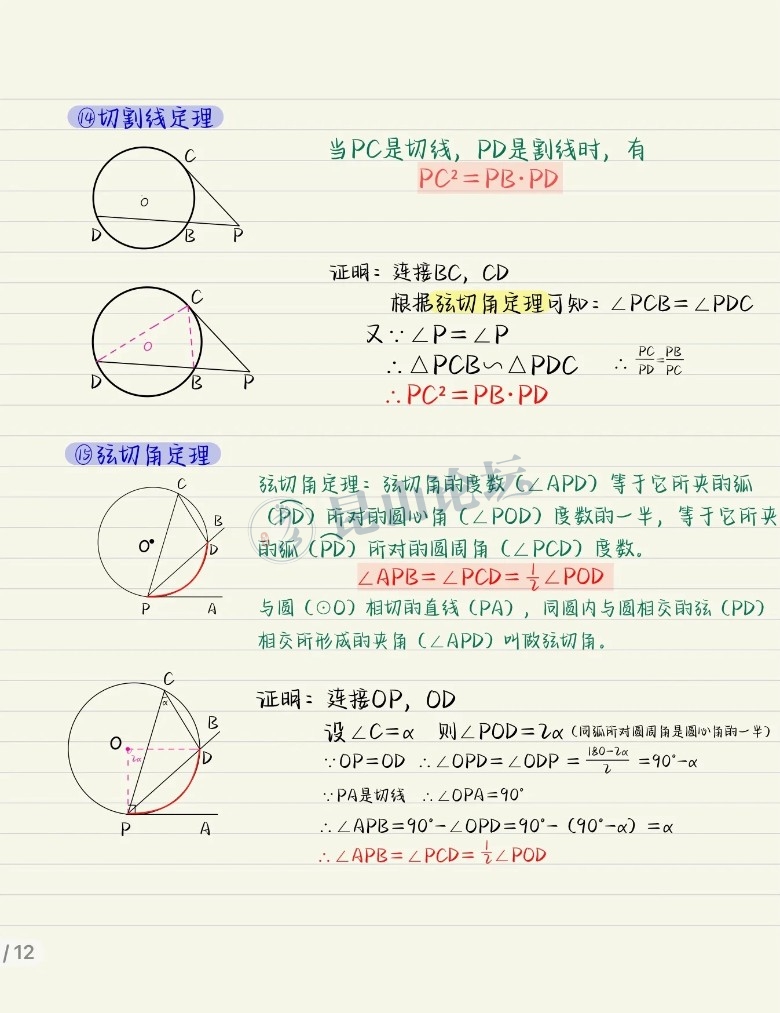 ⑭切割线定理
C
O
D
B
P
当PC是切线，PD是割线时，有
PC²=PB·PD
证明：连接BC，CD
根据弦切角定理可知：∠PCB=∠PDC
又∵∠P=∠P
∴△PCB∽△PDC ∴ PC/PD=PB/PC
∴PC²=PB·PD
C
O
D
B
P
⑮弦切角定理
C
B
O
D
P
A
弦切角定理：弦切角的度数（∠APD）等于它所夹的弧
（PD）所对的圆心角（∠POD）度数的一半，等于它所夹
的弧（PD）所对的圆周角（∠PCD）度数。
∠APB=∠PCD=½∠POD
与圆（⊙O）相切的直线（PA），同圆内与圆相交的弦（PD）
相交所形成的夹角（∠APD）叫做弦切角。
昆山论坛
C
α
B
O
2α
D
P
A
证明：连接OP，OD
设∠C=α 则∠POD=2α（同弧所对圆周角是圆心角的一半）
∵OP=OD ∴∠OPD=∠ODP=(180-2α)/2=90°-α
∵PA是切线 ∴∠OPA=90°
∴∠APB=90°-∠OPD=90°-（90°-α）=α
∴∠APB=∠PCD=½∠POD
/12